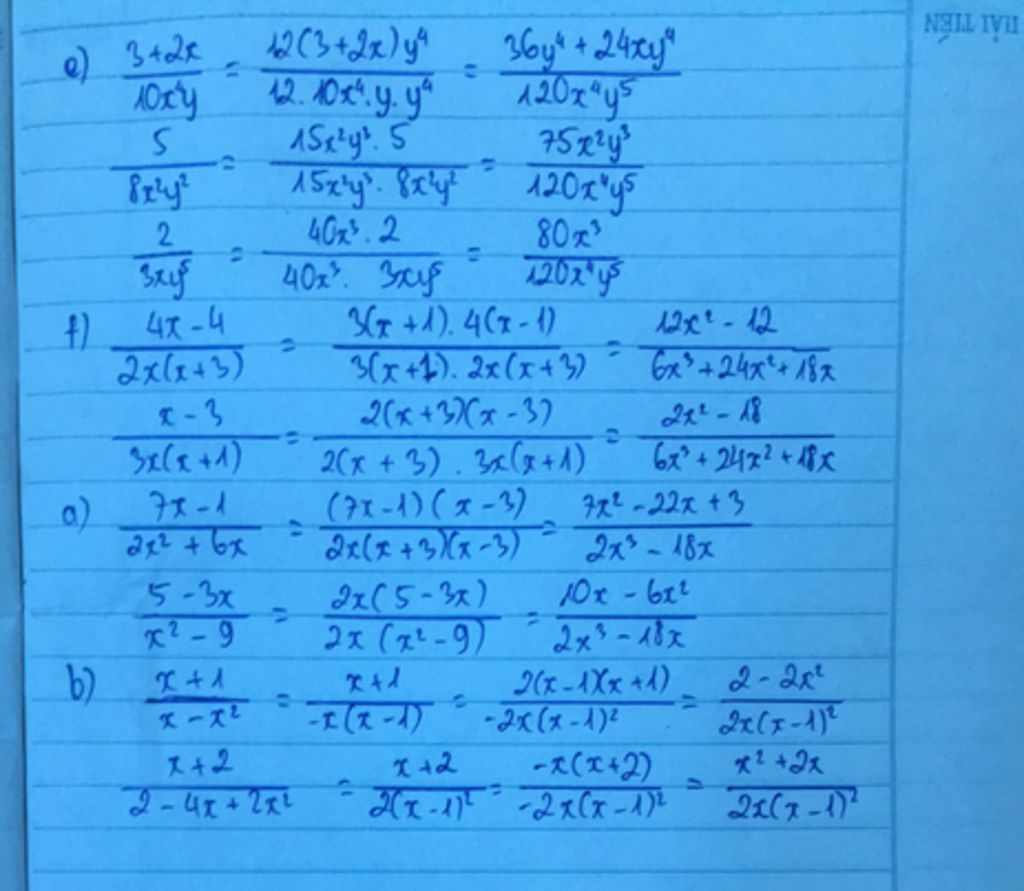 HẢI TIẾN
e) \frac{3+2x}{10x^4y} = \frac{12(3+2x)y^4}{12.10x^4.y.y^4} = \frac{36y^4+24xy^4}{120x^4y^5}
\frac{5}{8x^2y^2} = \frac{15x^2y^3.5}{15x^2y^3.8x^2y^2} = \frac{75x^2y^3}{120x^4y^5}
\frac{2}{3xy^5} = \frac{40x^3.2}{40x^3.3xy^5} = \frac{80x^3}{120x^4y^5}
f) \frac{4x-4}{2x(x+3)} = \frac{3(x+1).4(x-1)}{3(x+1).2x(x+3)} = \frac{12x^2-12}{6x^3+24x^2+18x}
\frac{x-3}{3x(x+1)} = \frac{2(x+3)(x-3)}{2(x+3).3x(x+1)} = \frac{2x^2-18}{6x^3+24x^2+18x}
a) \frac{7x-1}{2x^2+6x} = \frac{(7x-1)(x-3)}{2x(x+3)(x-3)} = \frac{7x^2-22x+3}{2x^3-18x}
\frac{5-3x}{x^2-9} = \frac{2x(5-3x)}{2x(x^2-9)} = \frac{10x-6x^2}{2x^3-18x}
b) \frac{x+1}{x-x^2} = \frac{x+1}{-x(x-1)} = \frac{2(x-1)(x+1)}{-2x(x-1)^2} = \frac{2-2x^2}{2x(x-1)^2}
\frac{x+2}{2-4x+2x^2} = \frac{x+2}{2(x-1)^2} = \frac{-x(x+2)}{-2x(x-1)^2} = \frac{x^2+2x}{2x(x-1)^2}